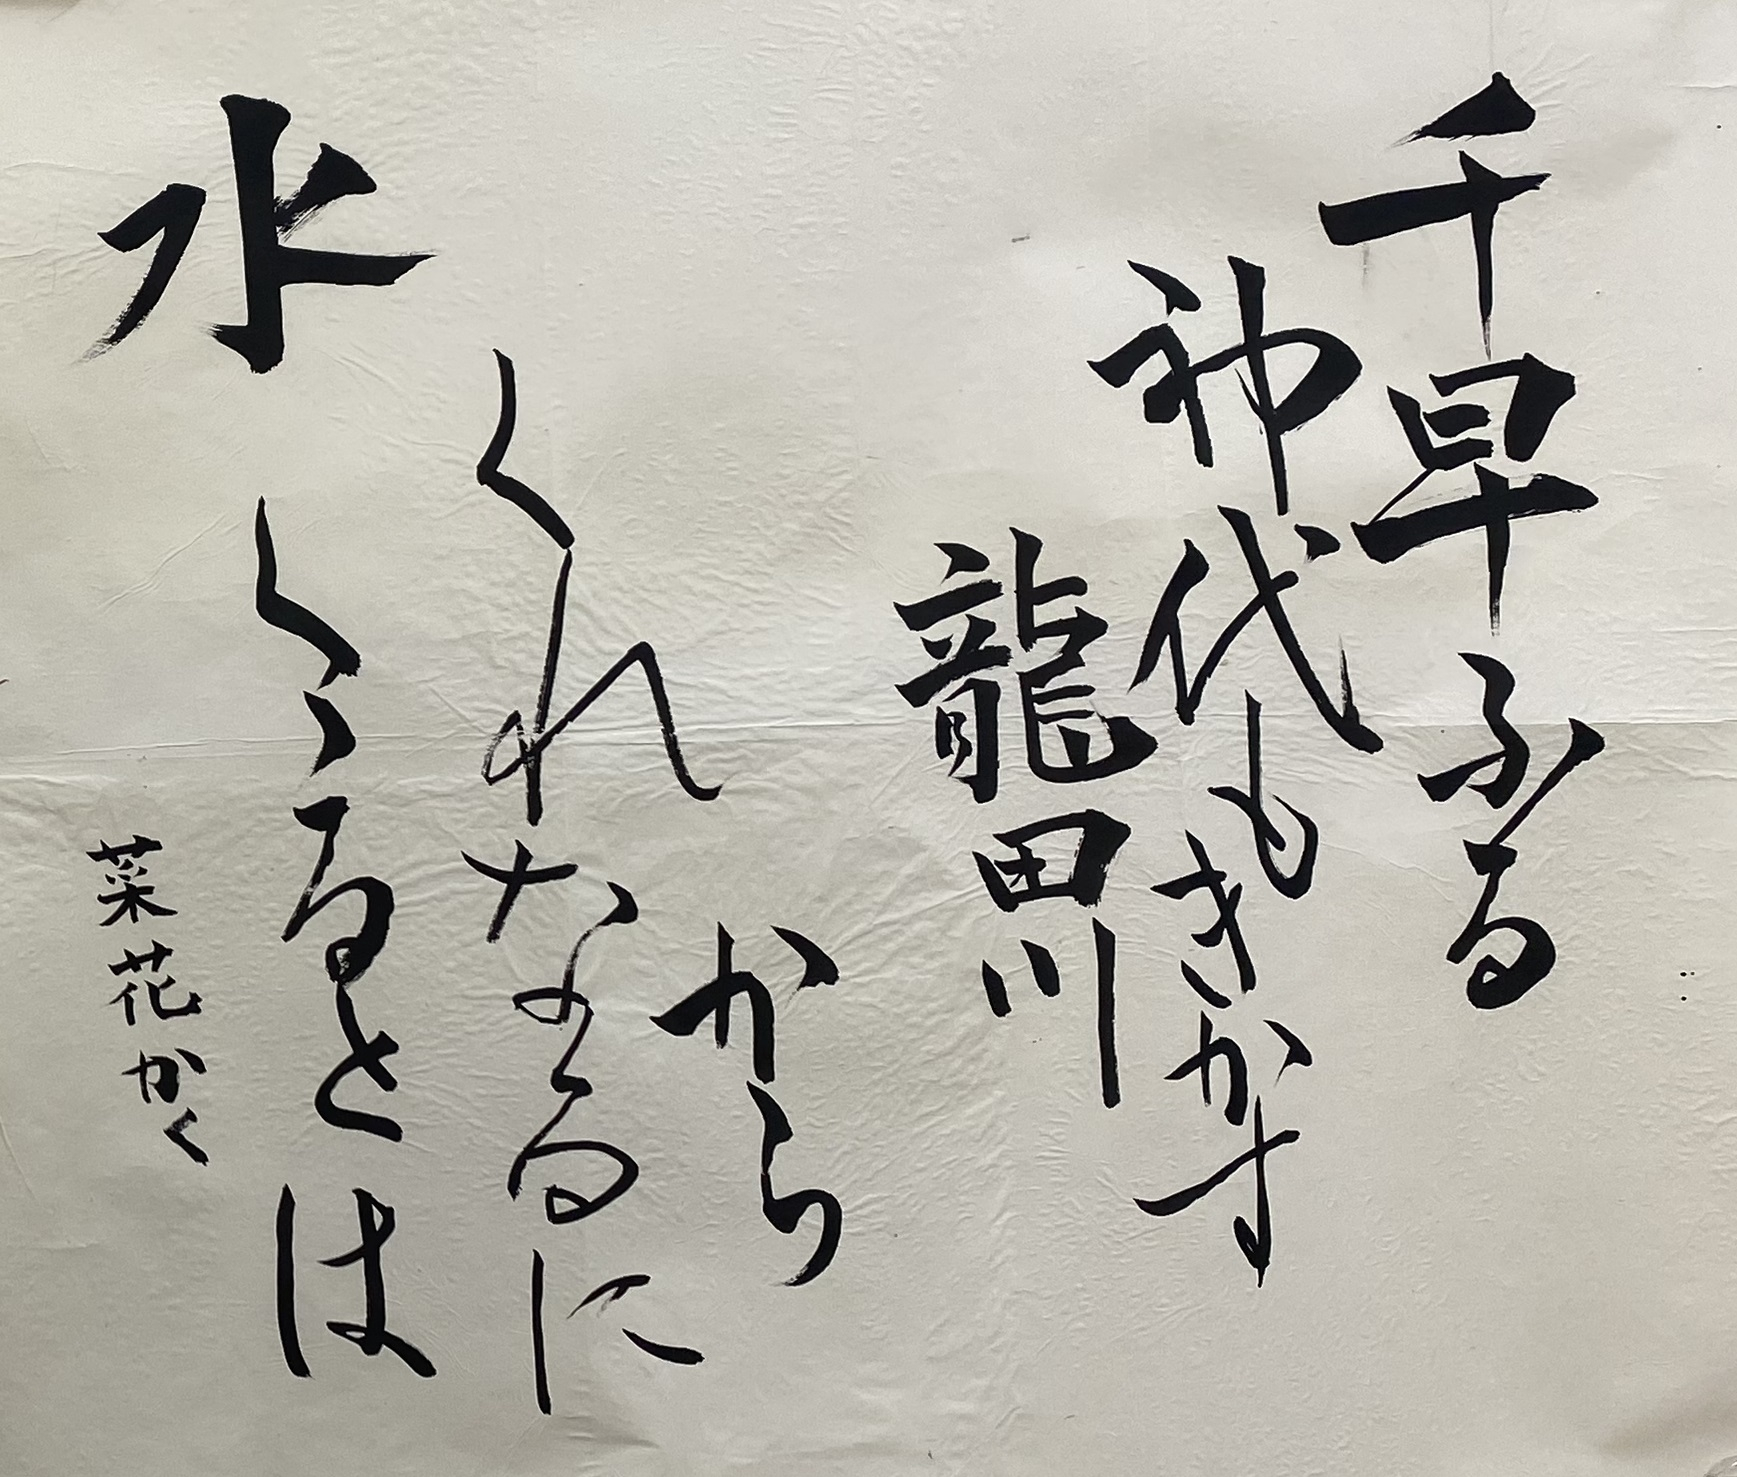 千早ふる
神代もきかす
龍田川
から
くれなゐに
水くゝるとは
菜花かく